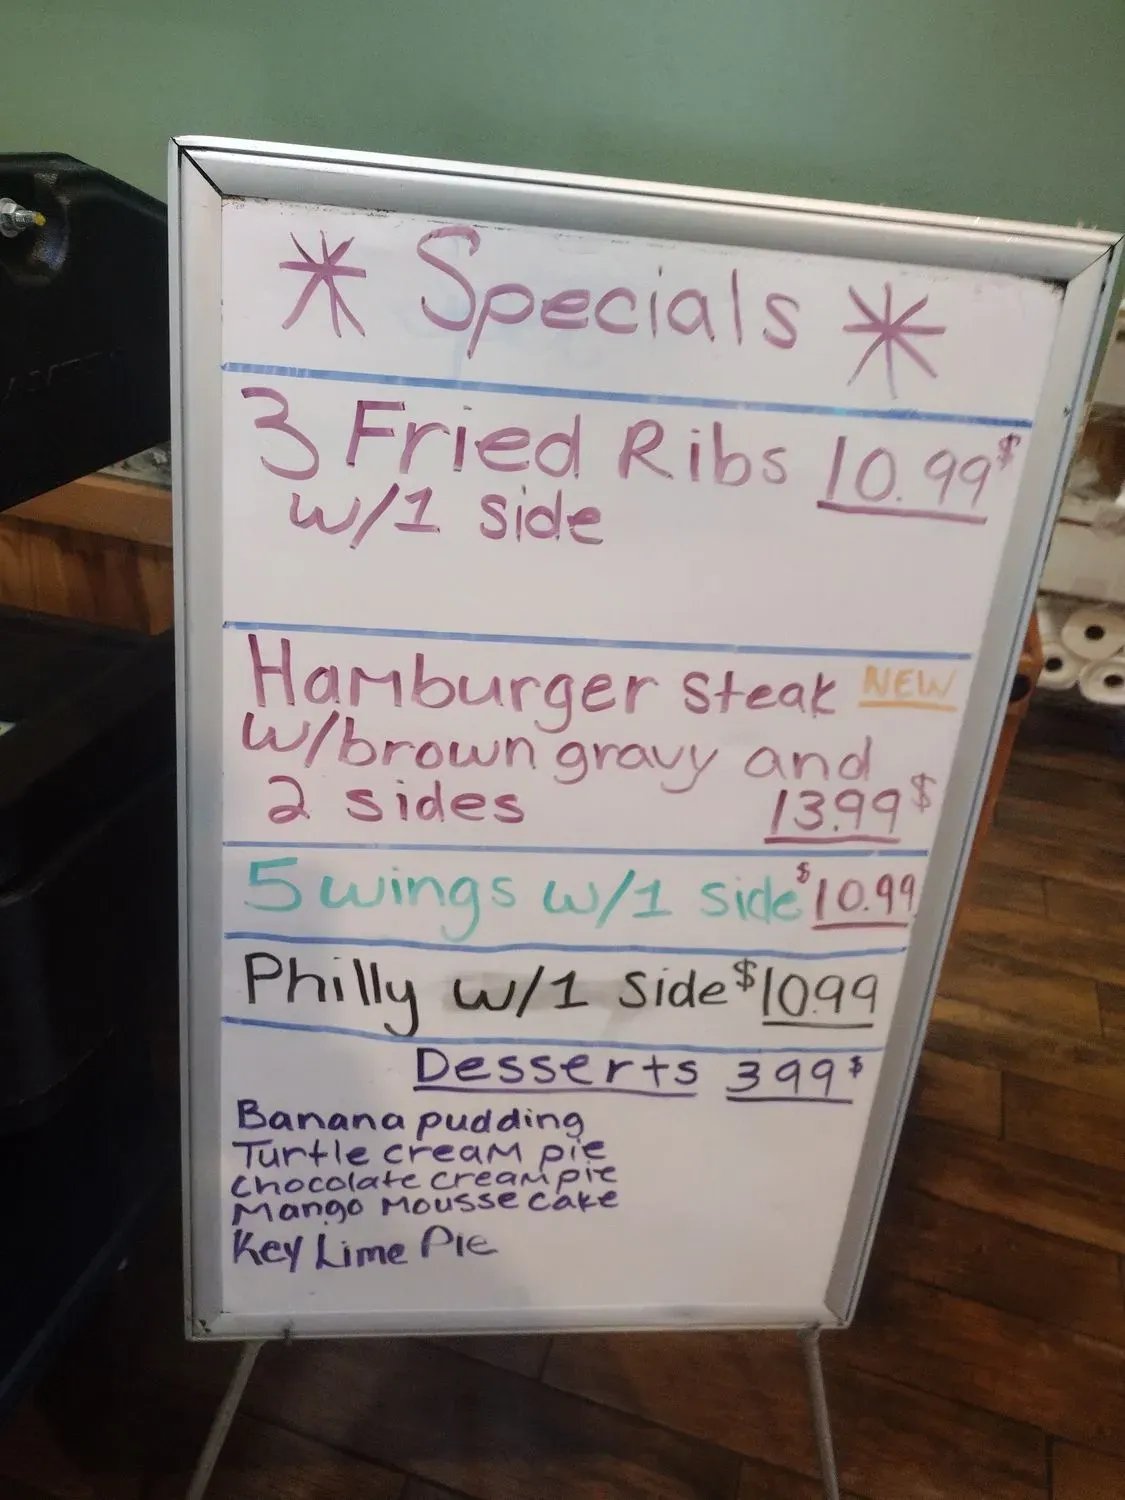 * Specials *
3 Fried Ribs 10.99$
w/1 side
Hamburger Steak NEW
w/brown gravy and
2 sides 13.99$
5 wings w/1 side $10.99
Philly w/1 Side $10.99
Desserts 399$
Banana pudding
Turtle cream pie
Chocolate cream pie
Mango Mousse cake
Key Lime Pie